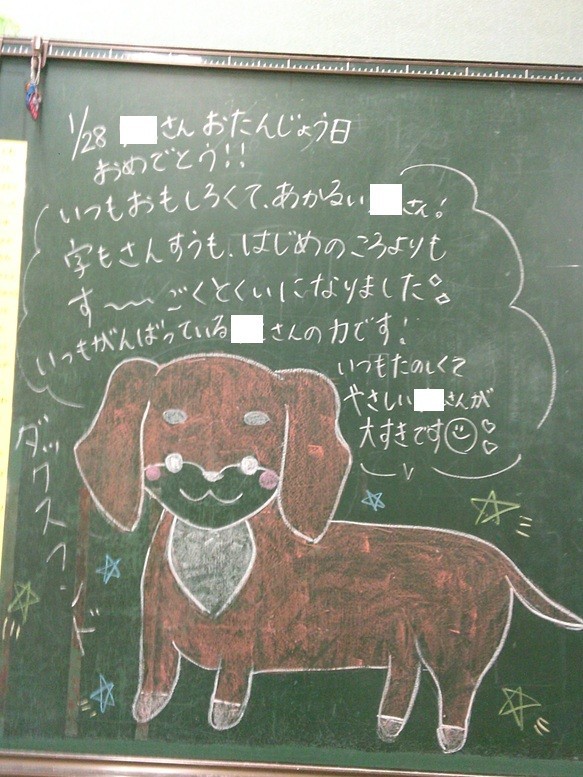 1/28 さん おたんじょう日
おめでとう!!
いつもおもしろくて、あかるい さん!
字もさんすうも、はじめのころよりも
す〜〜ごくとくいになりました
いつもがんばっている さんの力です!
いつもたのしくて
やさしい さんが
大すきです
ダックスフンド